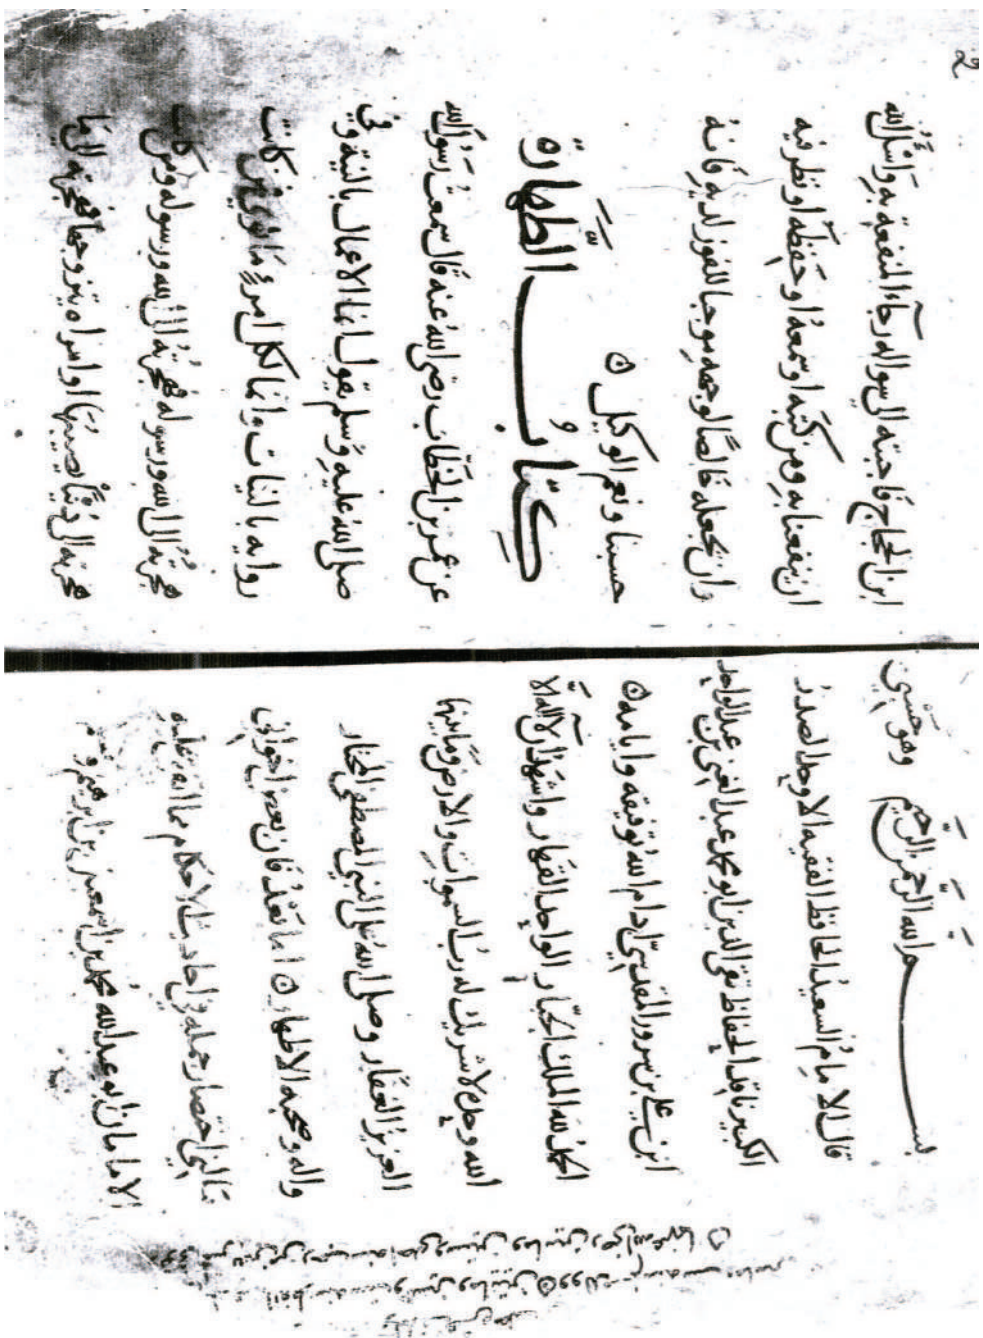 بسم الله الرحمن الرحيم وهو حسبي
قال الامام السعيد الحافظ الفقيه الاوحد الصدر
الكبير ناقد الحفاظ تقي الدين ابو محمد عبد الغني بن عبد الواحد
ابن علي بن سرور المقدسي ادام الله توفيقه وايامه ه
الحمد لله الملك الجبار الواحد القهار واشهد ان لا اله الا
الله وحده لا شريك له رب السموات والارض وما بينهما
العزيز الغفار وصلى الله على النبي المصطفى المختار
واله وصحبه الاطهار ه اما بعد فان بعض اخواني
سالني اختصار جملة في احاديث الاحكام مما اتفق عليه
الامامان ابو عبد الله محمد بن اسمعيل بن ابرهيم ومسلم
2
ابن الحجاج فاجبته الى سواله رجاء المنفعة به واسأل الله
ان ينفعنا به ومن كتبه او سمعه او حفظه او نظر فيه
وان يجعله خالصا لوجهه موجبا للفوز لديه فانه
حسبنا ونعم الوكيل ه
كتاب الطهارة
عن عمر بن الخطاب رضي الله عنه قال سمعت رسول الله
صلى الله عليه وسلم يقول انما الاعمال بالنية وفي
رواية بالنيات وانما لكل امرئ ما نوى فمن كانت
هجرته الى الله ورسوله فهجرته الى الله ورسوله ومن كانت
هجرته الى دنيا يصيبها او امراة يتزوجها فهجرته الى ما